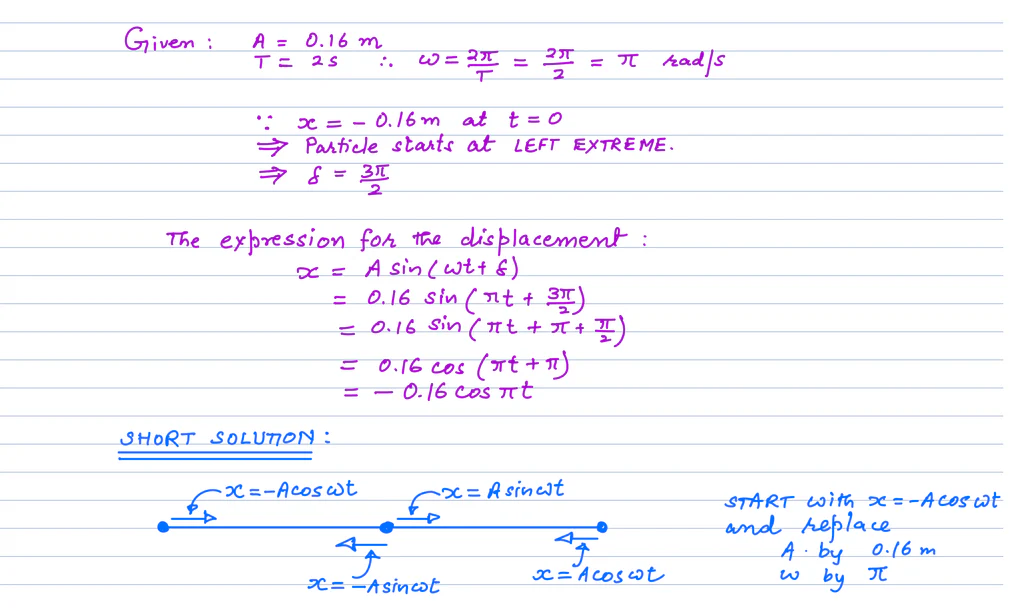 Given : A = 0.16 m
T = 2s ∴ ω = 2π/T = 2π/2 = π rad/s
∵ x = - 0.16m at t = 0
⇒ Particle starts at LEFT EXTREME.
⇒ δ = 3π/2
The expression for the displacement :
x = A sin(ωt + δ)
= 0.16 sin(πt + 3π/2)
= 0.16 sin(πt + π + π/2)
= 0.16 cos (πt + π)
= - 0.16 cos πt
SHORT SOLUTION :
x = -A cos ωt
x = A sin ωt
x = -A sin ωt
x = A cos ωt
START with x = -A cos ωt
and replace
A by 0.16 m
ω by π